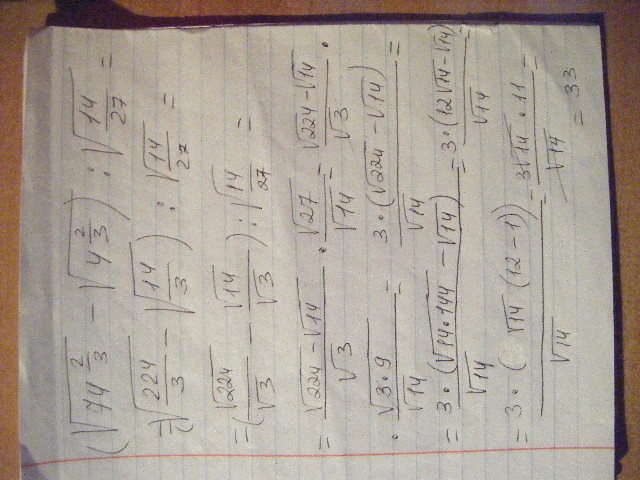 (√(74 2/3) - √(4 2/3)) : √(14/27) =
=(√(224/3) - √(14/3)) : √(14/27) =
=(√224/√3 - √14/√3) : √(14/27) =
= (√224-√14)/√3 · √27/√14 = (√224-√14)/√3 ·
· √(3·9)/√14 = 3·(√224-√14)/√14 =
= 3·(√(14·144) - √14)/√14 = 3·(12√14-√14)/√14 =
= 3·(√14 (12-1))/√14 = 3√14·11/√14 = 33